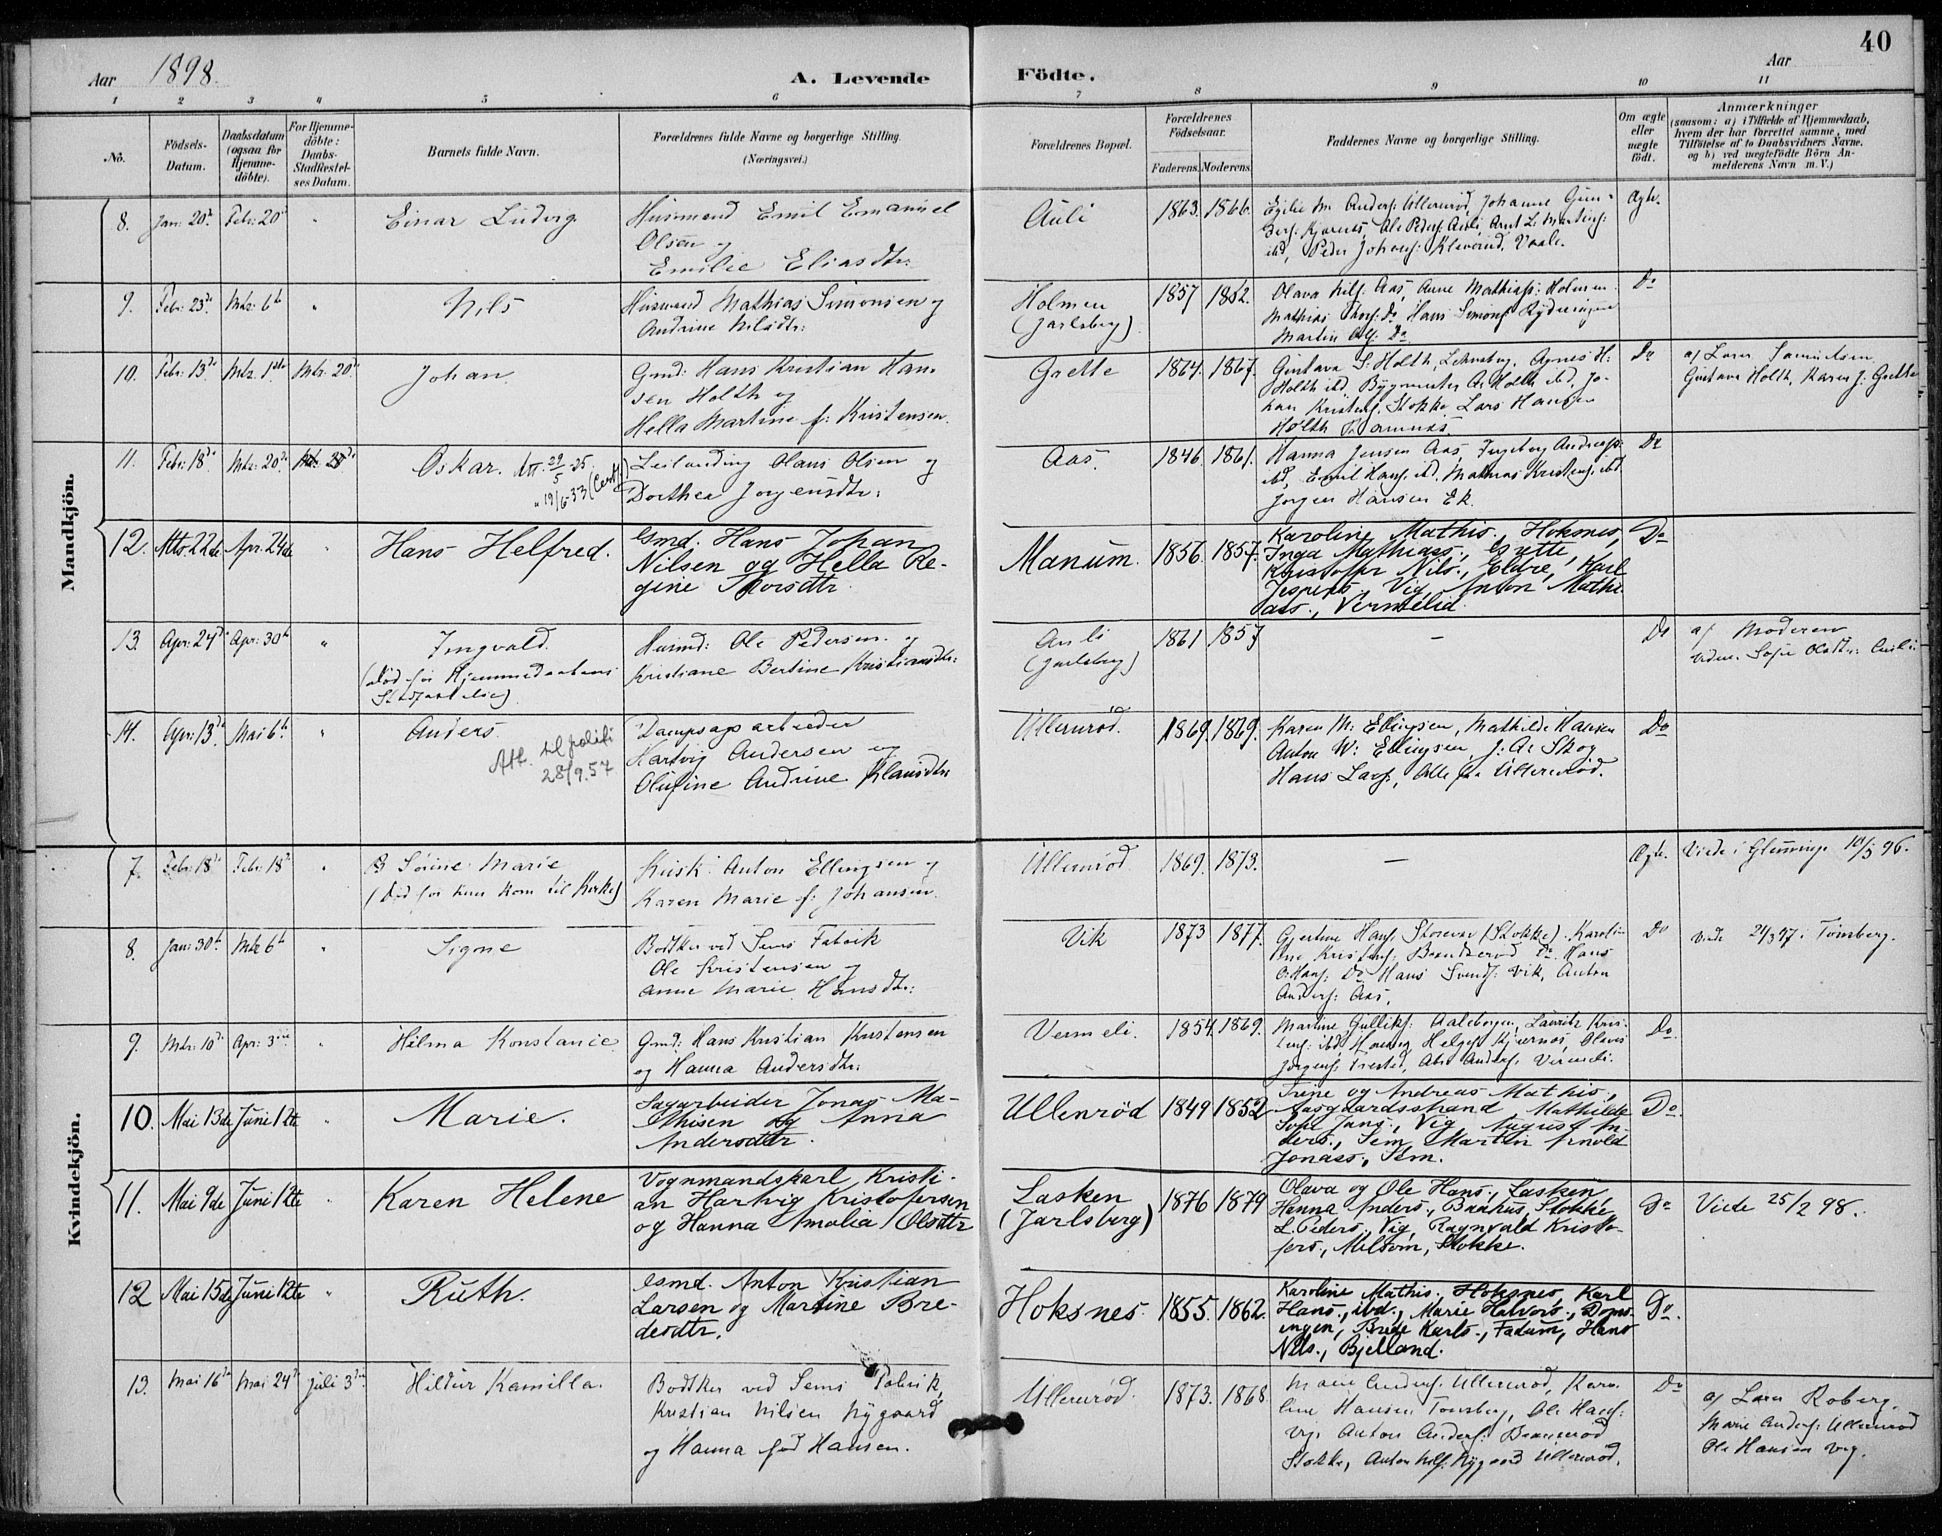 40
Aar 1898.
A. Levende Födte.
Aar
1 2 3 4 5 6 7 8 9 10 11
No.
Födsels-
Datum.
Daabsdatum
(ogsaa for
Hjemme-
döbte).
For Hjemme-
döbte:
Daabs-
Stadfæstel-
ses Datum.
Barnets fulde Navn.
Forældrenes fulde Navne og borgerlige Stilling.
(Næringsvei.)
Forældrenes Bopæl.
Forældrenes
Födselsaar.
Faderens. Moderens.
Faddernes Navne og borgerlige Stilling.
Om ægte
eller
uægte
födt.
Anmærkninger
(saasom: a) i Tilfælde af Hjemmedaab,
hvem der har forrettet samme, med
Tilföielse af to Daabsvidners Navne.
og b) ved uægtefödte Börn An-
melderens Navn m. V.)
Mandkjön.
8. Jan: 20de Febr: 20de " Einar Ludvig
Husmand Emil Emanuel
Olsen og
Emilie Eliasdtr:
Auli 1863. 1866.
Anders: Ullenröd, Johanne
Ole Peders: Auli, Arnt L. Martins:
ibd, Peder Johans: Vaale.
Ægte.
9. Febr: 23de Mts: 6te " Nils
Husmand Mathias Simonsen og
Andrine Nilsdtr:
Holmen
(Jarlsberg) 1857 1852.
Olava Nils: Aas, Anne Mathiass: Holmen
Mathias Thors: Do Hans Simons:
Martin Do
Do
10. Febr: 13de Mts. 1ste Mts: 20de Johan.
Gmd: Hans Kristian Han-
sen Holth og
Hella Martine f: Kristensen.
Grette 1864. 1867.
Gustava S. Holth, Agnes H.
Holth ibd, Bygmester A. Holth ibd, Jo-
han Kristens: Stokke, Lars Hansen
Holth
Do
af Lars Samuelsen
Gustava Holth, Karen J: Grette
11. Febr: 18de Mts: 20de Oskar. Att. 29/5-35.
" 19/6-53 (Cert)
Leilending Olaus Olsen og
Dorthea Jörgensdtr:
Aas. 1846. 1861.
Hanna Jensen Aas, Ingeborg Andreass:
ibd, Emil Hans: ibd. Mathias Kristens: ibd
Jörgen Hansen Ek.
Do
12. Mts. 22de Apr. 24de " Hans Helfred.
Gmd. Hans Johan
Nilsen og Hella Re-
gine Thorsdtr.
Manum. 1856. 1857.
Karoline Mathis., Hoksnes,
Inga Mathiass., Grette,
Kristoffer Nils., Eldre, Karl
Jespers., Vig, Anton Mathi-
ass., Vermelid.
Do
13. Apr: 24de Apr: 30te " Ingvald.
(död för Hjemmedaabens
Stadfæstelse)
Husmd: Ole Pedersen og
Kristiane Bertine Kristiansdtr:
Auli
(Jarlsberg) 1861 1857
—
Do
af Moderen
Vidne: Sofie Olsdtr: Auli
14. Apr: 13de Mai 6te " Anders.
Att. til politi
28/9.57
Dampsagarbeider
Hartvig Andersen og
Olufine Andrine Klausdtr
Ullenröd. 1869. 1869.
Karen M: Ellingsen, Mathilde Hansen
Anton W: Ellingsen, J: A: Skog
Hans Lars:, Alle fra Ullenröd.
Do
Kvindekjön.
7. Febr: 18de Febr: 18de " Sörine Marie
(Död för hun kom til Kirke)
Kusk: Anton Ellingsen og
Karen Marie f: Johansen.
Ullenröd 1869. 1873.
—
Ægte. Viede i Glemminge 10/5 96.
8. Jan: 30te Mts 6te " Signe
Bödker ved Sems Fabrik
Ole Kristensen og
Anne Marie Hansdtr:
Vik 1873 1877.
Gjertine Hans: Storevar (Stokke). Karoline
Kristens: Brunderöd Do Hans
O: Hans: Do Hans Svends: Vik, Anton
Anders: Aas.
Do Viede 21/3 97 i Tönsberg.
9. Mts: 10de Apr: 3die " Hilma Konstanie.
Gmd: Hans Kristian Kristensen
og Hanna Andersdtr:
Vermeli. 1854. 1869.
Martine Gulliks: Lauritz Kris-
tens: ibd, Helges: Kjærnes, Olaves
Jörgens: Trested, Abr. Anders: Vermeli.
Do.
10. Mai 13de Juni 12te " Marie.
Sagarbeider Jonas Ma-
thisen og Anna
Andersdtr.
Ullenröd 1849 1852
Trine og Andreas Mathis.,
Aasgaardsstrand, Mathilde
Sofie Jans., Vig, August An-
ders., Sem, Martin Arnold
Jonass., Sem.
Do.
11. Mai 9de Juni 12te " Karen Helene
Vognmandskarl Kristi-
an Hartvig Kristofersen
og Hanna Amalia Olsdtr
Lasken
(Jarlsberg) 1876 1879
Olava og Ole Hans., Lasken
Hanna Anders., Baarhus, Stokke
L. Peders., Vig, Ragnvald Kristo-
fers., Melsom, Stokke.
Do Viede 25/2 98.
12 Mai 15de Juni 12te " Ruth.
Gsmd. Anton Kristian
Larsen og Martine Bre-
desdtr.
Hoksnes. 1855. 1862.
Karoline Mathis., Hoksnes, Karl
Hans., ibd., Marie Halvors.,
Brede Karls., Fadum, Hans
Nils., Bjelland.
Do.
13. Mai 16de Mai 24de Juli 3die Hildur Kamilla.
Bödker ved Sems Fabrik,
Kristian Nilsen Nygaard
og Hanna född Hansen.
Ullenröd. 1873. 1868
Marie Anders: Ullenröd, Karo-
line Hansen Tönsberg, Ole Hans:
Vig, Anton Anders: Brunneröd
Stokke, Anton Nils: Nygaard Ullenröd.
Do
af Lars Roberg.
Marie Anders: Ullenröd
Ole Hansen Vig.